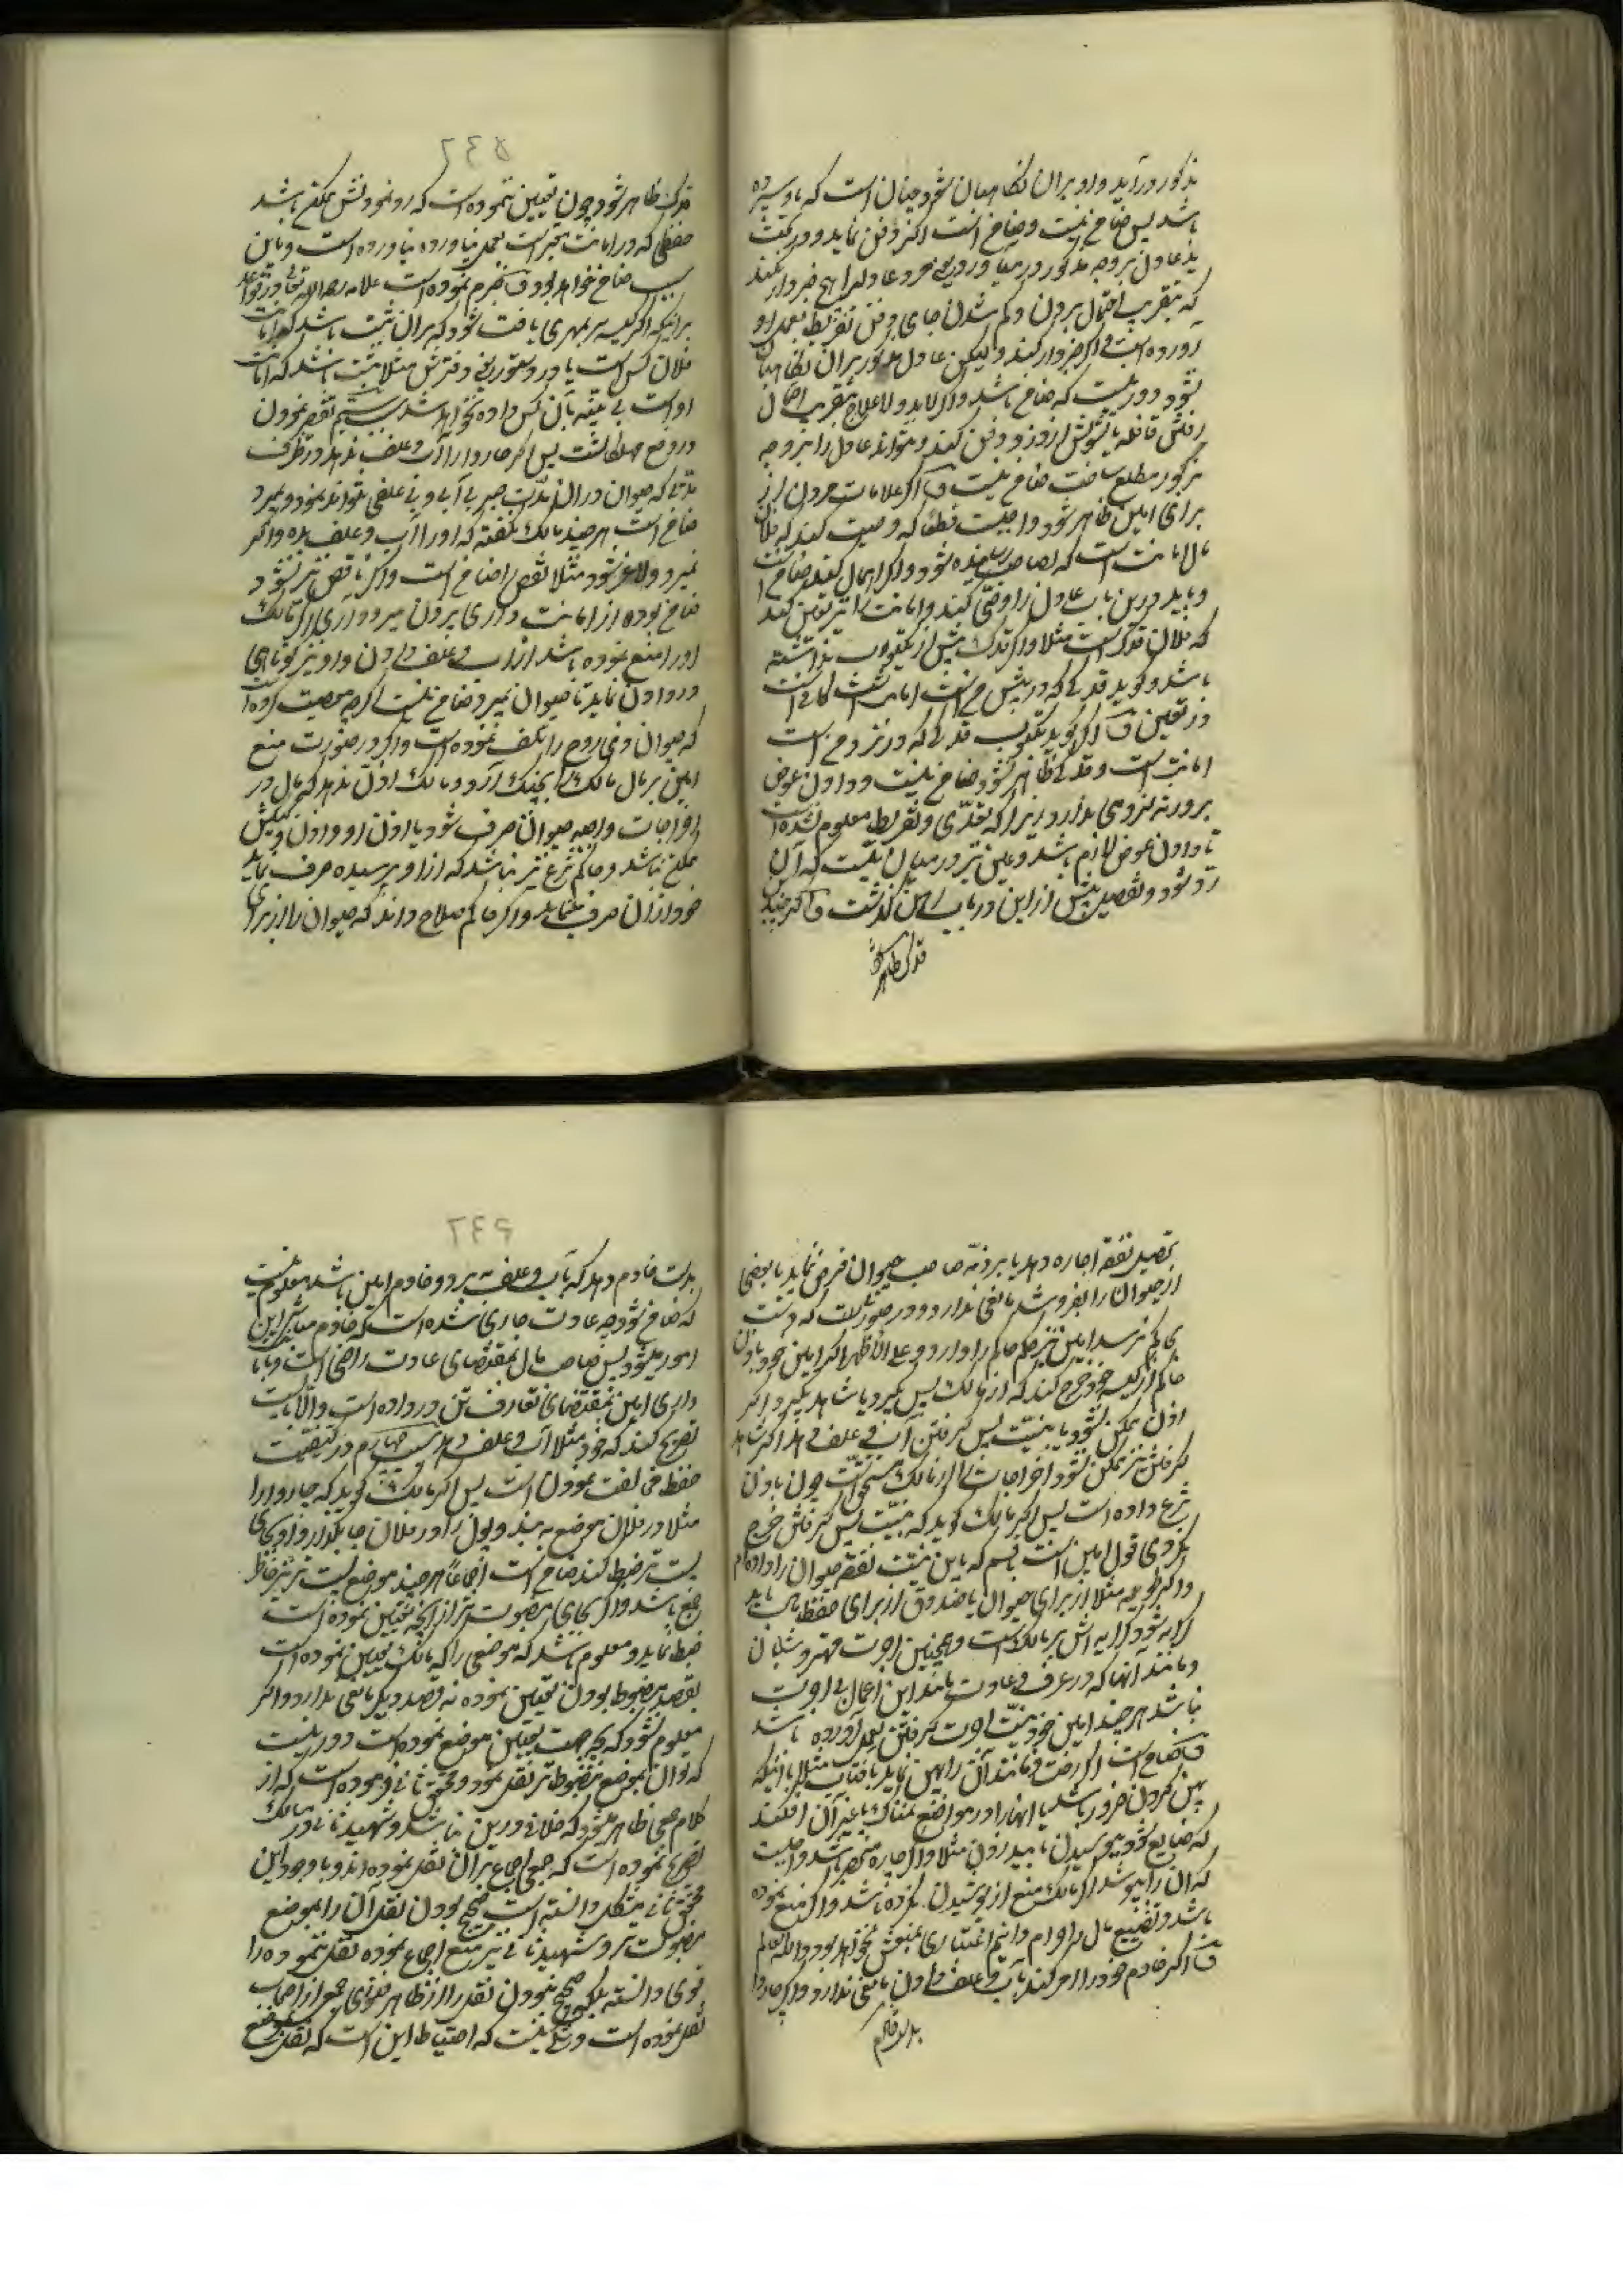 مذکور درآید و او بران نکاهبان شود چنان است که باو سپرده
باشد پس ضامن نیست و ضامن است اکر دفن نماید و در کفت
که بتقریب احتمال بردن و کم شدن جای دفن تفریط بعمل او
آورده است و اکر خبردار کند و لیکن عادل مذکور بران نکاهبان
نشود دور نیست که ضامن باشد و اکر لابد و لاعلاج بتقریب
رفتن قافله یا تشویش از دزد دفن کند و نتواند عادل را بنوجه
مزکور مطلع ساخت ضامن نیست و اکر علامات مردن از
برای امین ظاهر شود واجبست قطعا که وصیت کند که فلان
مال امانت است که بصاحب داده شود و اکر اهمال کند ضامن است
و باید درین باب عادل را وصی کند و امانت را نیز تعیین کند
که فلان قدک است مثلا و اکر قدک بیش از یکثوب نداشته
باشد و کوید قدکی که در پیش من است امانت است کافی است
در تعیین و اکر کوید یکثوب قدکی که در نزد من است
امانت است و قدکی ظاهر نشود ضامن نیست و دادن عوض
بر ورثه لزومی ندارد زیرا که تعدی و تفریط معلوم نشده است
تا دادن عوض لازم باشد و عین نیز در میان نیست که آن
رد شود و تفصیل بیش از این در باب رهن کذشت و اکر چند
قدک ظاهر شود
قدک ظاهر شود چون تعیین ننموده است که رد نمودنش ممکن باشد
حفظی که در امانت معتبر است بعمل نیاورده است و باین
سبب ضامن خواهد بود و جزم نموده است علامه رحمه الله تعالی در قواعد
برانکه اکر کیسه سر بمهری یافت شود که بران ثبت باشد که امانت
فلان کس است یا در دستورین و دفترش مثلا ثبت باشد که امانت
او است بی بینه بآن کس داده نخواهد شد سبب سیم تقصیر نمودن
در دفع مهلکات است پس اکر چاروا را آب و علف ندهد در ظرف
مدتی که حیوان در ان مدت صبر بی آبی و بی علفی نتواند نمود و بمیرد
ضامن است هر چند مالک نکفته که او را آب و علف بده و اکر
نمیرد و لاغر شود مثلا نقص را ضامن است و اکر ناقص نیز نشود
ضامن بوده از امانت داری بیرون میرود آری اکر مالک
او را منع نموده باشد از آب و علف دادن و او نیز کوتاهی
در دادن نماید تا حیوان بمیرد ضامن نیست اکرچه معصیت کرده
که حیوان ذی روح را تلف نموده است و اکر در صورت منع
امین بر مال مالک آرد و مالک اذن ندهد که مال در
اخراجات واجبه حیوان صرف شود یا اذن او و اذن وکیلش
ممکن نباشد و حاکم شرع نیز نباشد که از او پرسیده صرف نماید
خود از ان صرف مینماید و اکر حاکم صلاح داند که حیوان را از برای
تحصیل نفقه اجاره دهد یا بر ذمه صاحب حیوان قرض نماید یا بعضی
از حیوان را بفروشد مانعی ندارد و در صورتیست که دست
بحاکم نرسد امین نیز حکم حاکم را دارد و علی الاظهر اکر امین خود باذن
حاکم از کیسه خود خرج کند که از مالک پس بکیرد یا شاهد بکیرد و اکر
اذن ممکن نشود یا بنیت پس کرفتن آب و علف دهد اکر شاهد
کرفتن نیز ممکن نشود اخراجات را از مالک مستحق است چون باذن
شرع داده است پس اکر مالک کوید که بنیت پس کرفتن خرج
نکردی قول امین است بقسم که باین نیت نفقه حیوان را داده ام
و اکر طویله مثلا از برای حیوان یا صندوق از برای حفظ مال باید
کرایه شود کرایه اش بر مالک است و همچنین اجرت مهتر و شبان
و مانند آنها که در عرف و عادت مانند این اعمال بی اجرت
نباشد هر چند امین خود بنیت اجرت کرفتن بعمل آورده باشد
و ضامن است اکر رخت و مانند آن را پهن ننماید بافتاب مثلا با آنکه
پهن کردن ضرور باشد یا انها را در مواضع نمناک یا غیر آن افکند
که ضایع شود بپوسیدن یا بید زدن مثلا و اکر چاره منحصر باشد واجبست
که ان را بپوشد اکر مالک منع از پوشیدن نکرده باشد و اکر منع نموده
باشد و تضییع مال را حرام دانیم اعتباری بمنعش نخواهد بود و الله یعلم
و اکر خادم خود را امر کند بآب و علف دادن مانعی ندارد و اکر چاروا
بدست خادم
بدست خادم دهد که بآب و علف برد و خادم امین باشد معلوم نیست
که ضامن شود چه عادت جاری شده است که خادم مباشر این
امور میشود پس صاحب مال بمقتضای عادت راضی است و امانت
داری امین بمقتضای تعارف تن در داده است و الا بایست
تصریح کند که خود مثلا آب و علف دهد سبب چهارم در کیفیت
حفظ مخالفت نمودن است پس اکر مالک کوید که چاروا را
مثلا در فلان موضع به بند و پول را در فلان جا بکذار و او بجای
پست تر ضبط کند ضامن است اجماعا هر چند موضع پست تر نیز حافظ
جمع باشد و اکر بجای مضبوطتر از آنچه تعیین نموده است
ضبط نماید و معلوم باشد که موضعی را که مالک تعیین نموده است
بقصد مضبوط بودن تعیین نموده نه قصد دیکر مانعی ندارد و اکر
معلوم نشود که بچه جهت تعیین موضع نموده است دور نیست
که توان بموضع مضبوطتر نقل نمود و محقق ثانی فرموده است که از
کلام جمعی ظاهر میشود که خلافی درین نباشد و شهید ثانی در مسالک
تصریح نموده است که جمعی اجماع بر آن نقل نموده اند و با وجود این
محقق ثانی مشکل دانسته است صحیح بودن نقل آن را بموضع
مضبوطتر و شهید ثانی نیز منع اجماع نموده نقل ننمودن را
قوی دانسته بلکه صحیح نبودن نقل را از ظاهر فتوی جمعی از اصحاب
نقل نموده است و شکی نیست که احتیاط این است که نقل بموضع